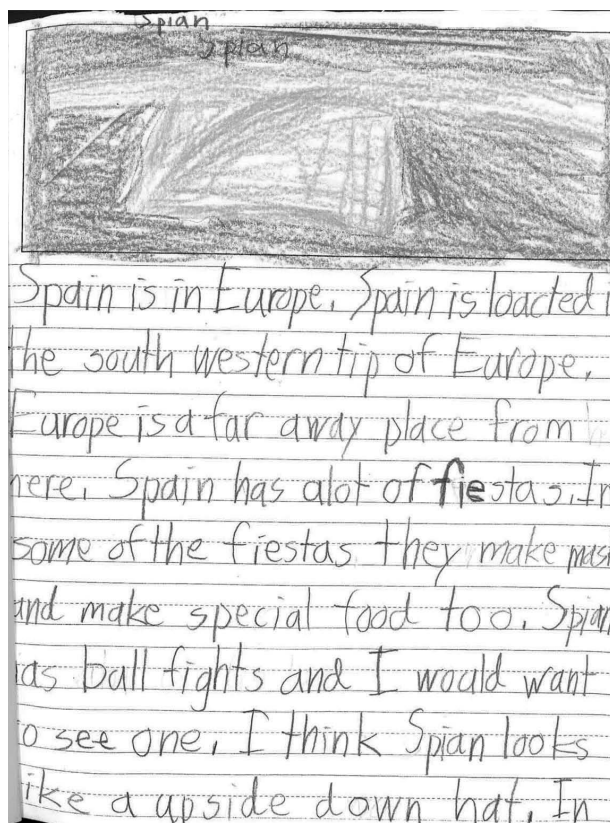 Spian
Spian
Spain is in Europe. Spain is loacted
the south western tip of Europe.
Europe is a far away place from
here. Spain has alot of fiestas. In
some of the fiestas they make
and make special food too. Spian
has bull fights and I would want
to see one. I think Spian looks
like a upside down hat. In